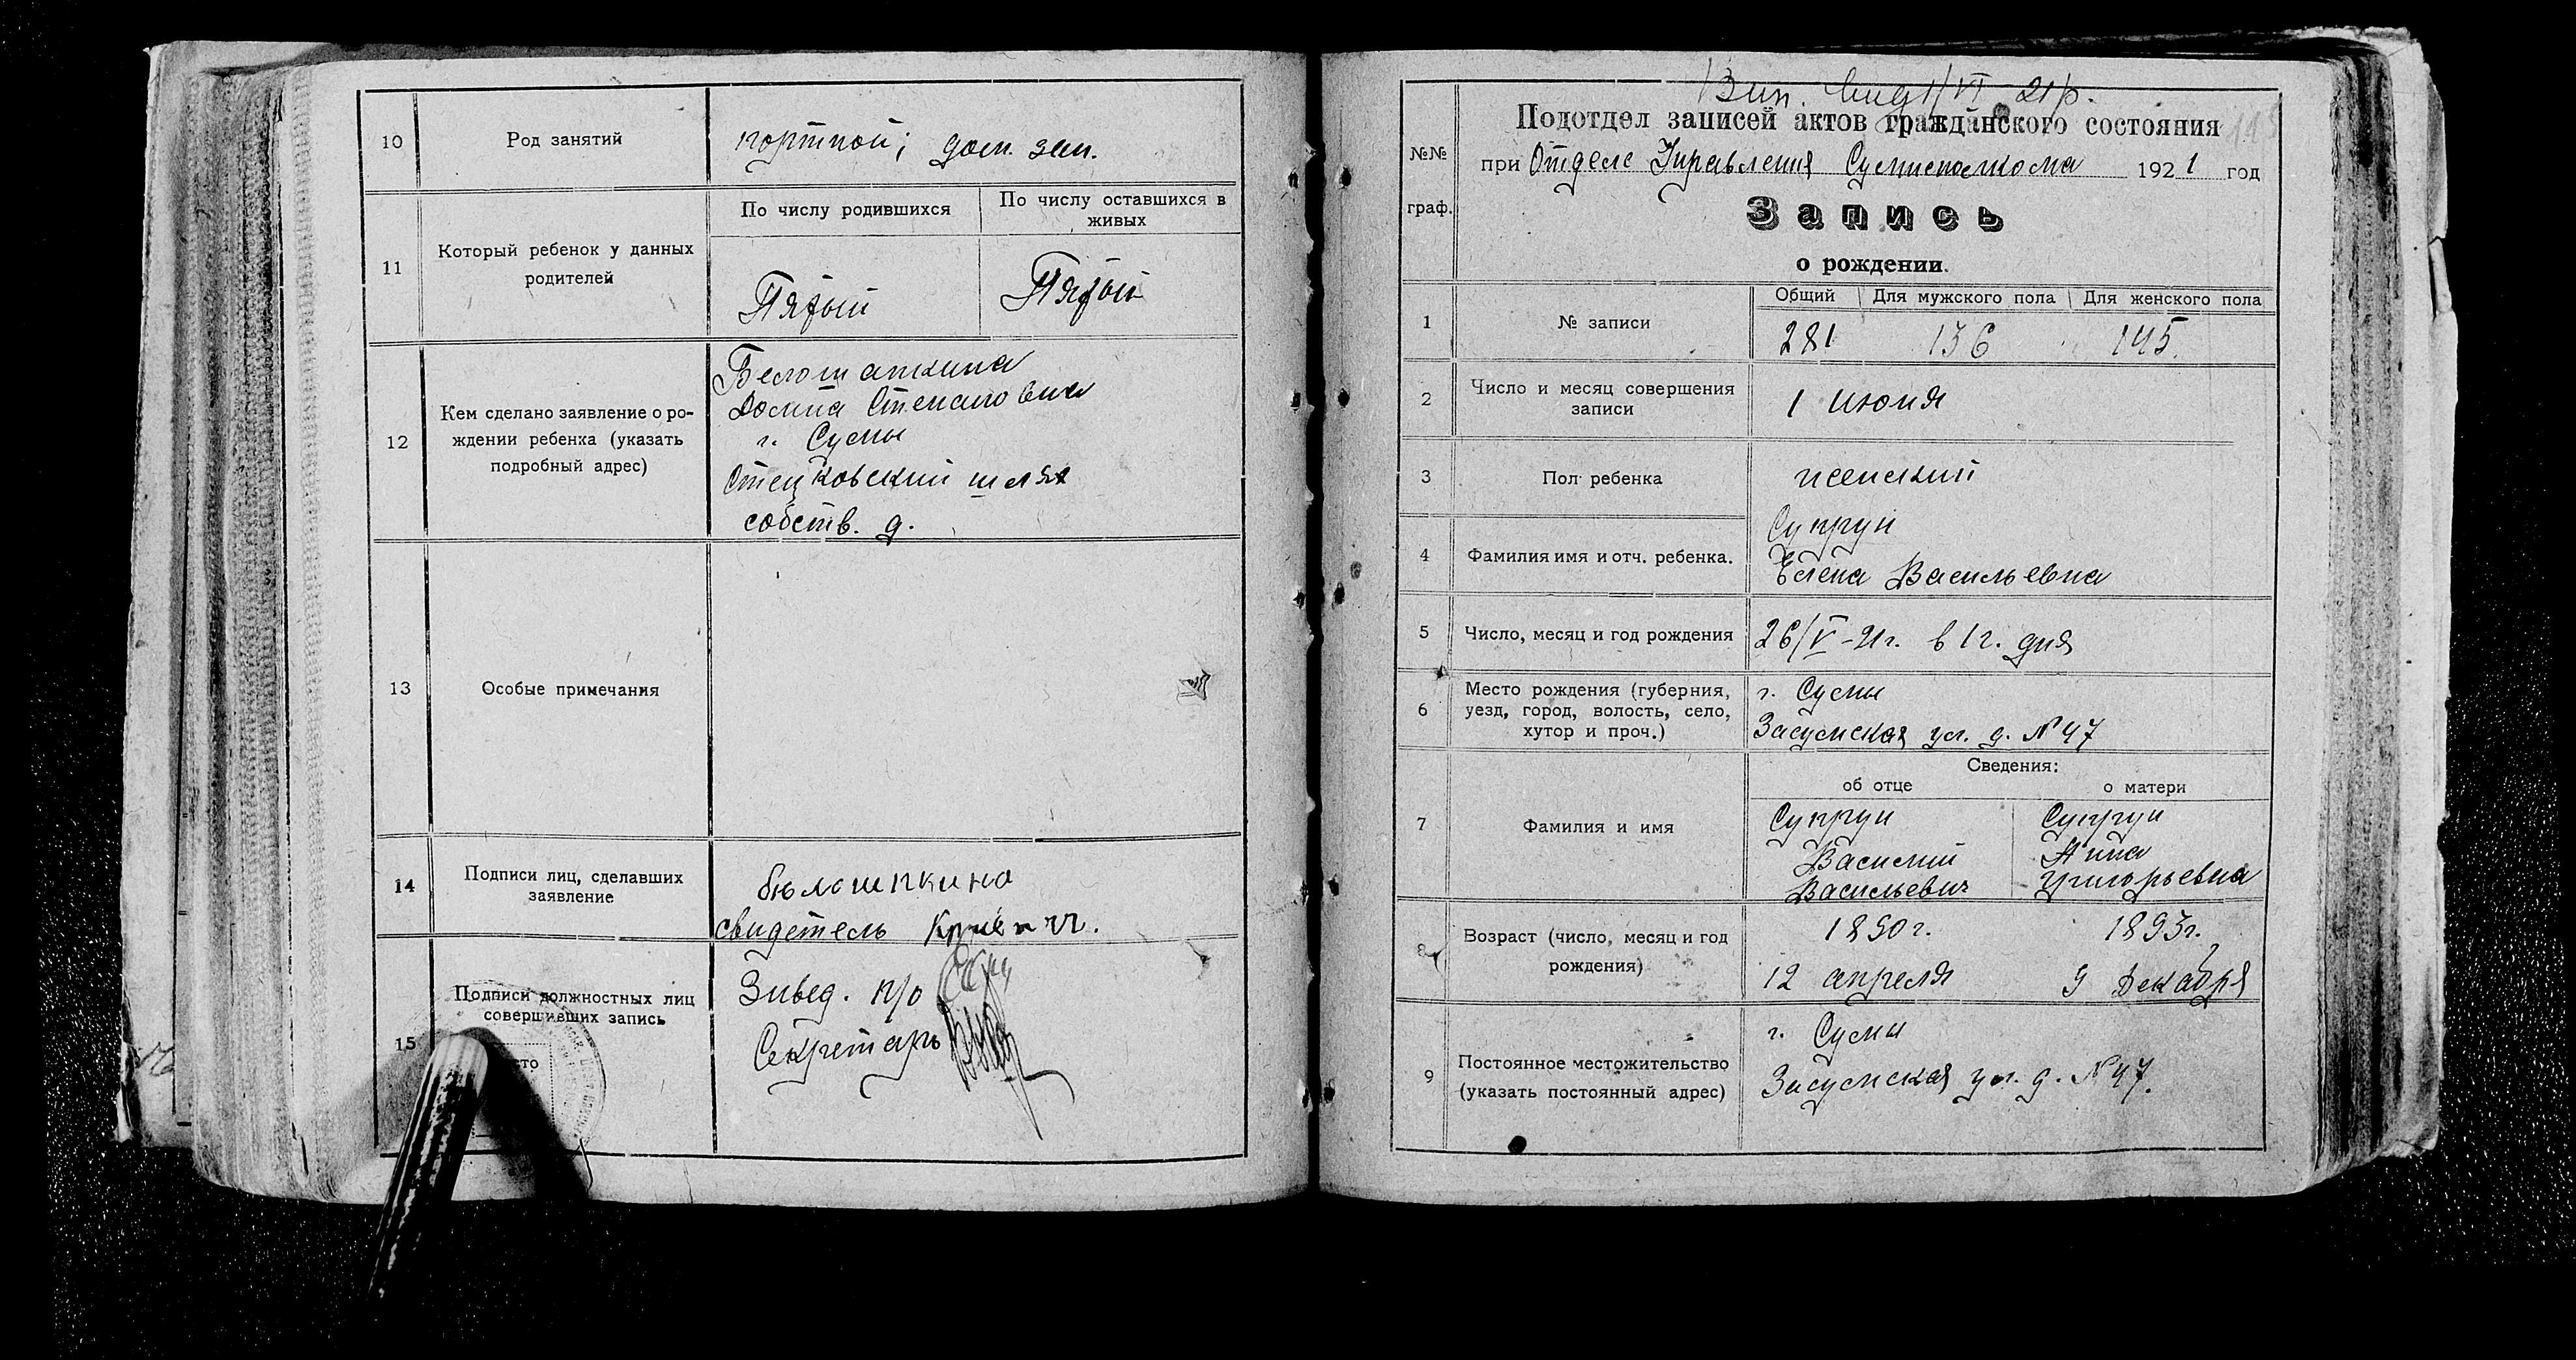 10
Род занятий
портной; дом. зан.
11
Который ребенок у данных
родителей
По числу родившихся
По числу оставшихся в
живых
Пятый
Пятый
12
Кем сделано заявление о ро-
ждении ребенка (указать
подробный адрес)
Белошапкина
Домна Степановна
г. Сумы
Стецковский шлях
собств. д.
13
Особые примечания
14
Подписи лиц, сделавших
заявление
свидетель
15
Подписи должностных лиц
совершивших запись
Завед. п/о
Секретарь
Вип. 1/VI 21р.
№№
граф.
Подотдел записей актов гражданского состояния
при Отделе Управления Сумисполкома 1921 год
Запись
о рождении.
1
№ записи
Общий Для мужского пола Для женского пола
281 136 145.
2
Число и месяц совершения
записи
1 июня
3
Пол ребенка
женский
4
Фамилия имя и отч. ребенка.
Супрун
Елена Васильевна
5
Число, месяц и год рождения
26/V-21г. в 1 г. дня
6
Место рождения (губерния,
уезд, город, волость, село,
хутор и проч.)
г. Сумы
Засумская ул. д. №47
7
Фамилия и имя
Сведения:
об отце
о матери
Супрун
Василий
Васильевич
Супрун
Анна
Григорьевна
8
Возраст (число, месяц и год
рождения)
1890г.
12 апреля
1893г.
9 Декабря
9
Постоянное местожительство
(указать постоянный адрес)
г. Сумы
Засумская ул. д. №47.